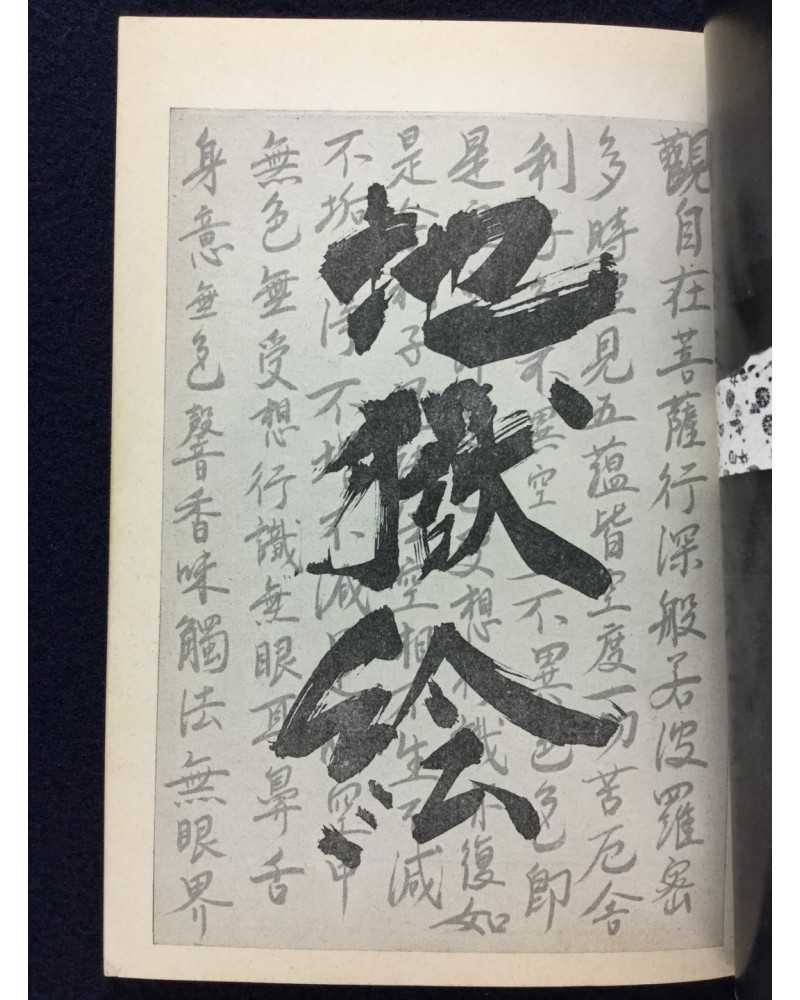 地獄絵
觀自在菩薩行深般若波羅密
多時空見五蘊皆空度一切苦厄舍
利子色不異空 不異色色即
是空 即 色受想行識亦復如
是舍利子是 空相不生不減
不垢 淨不増不減是 空中
無色無受想行識無眼耳鼻舌
身意無色聲香味觸法無眼界